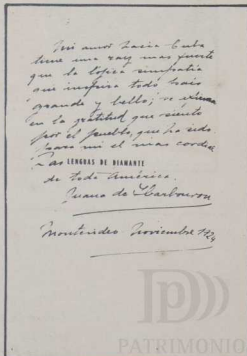 Mi amor hacia Cuba
tiene una raíz mas fuerte
que la lógica simpatía
que inspira todo país
grande y bello;
en la gratitud que siento
por el pueblo, que ha sido
para mi el mas cordial
LENGUAS DE DIAMANTE
de toda América.
Juana de Ibarbourou
Montevideo Noviembre 1924
PATRIMONIO